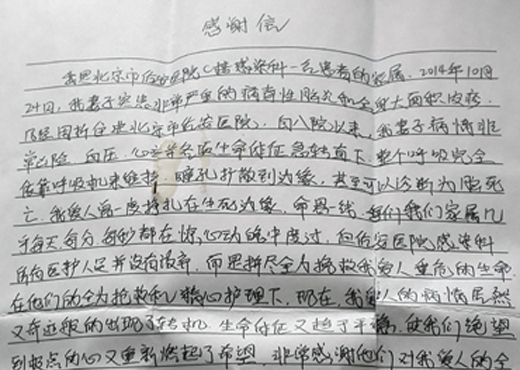 感谢信
我是北京市佑安医院C楼感染科一名患者的家属。2014年10月
24日，我妻子突患非常严重的病毒性脑炎和全身大面积皮疹，
几经周折住进北京市佑安医院。自入院以来，我妻子病情非
常危险，血压、心率等各项生命体征急转直下，整个呼吸完全
依靠呼吸机来维持，瞳孔扩散到边缘，甚至可以诊断为脑死
亡。我爱人曾一度挣扎在生死边缘，命悬一线，我们家属几
乎每天每分每秒都在惊心动魄中度过，但佑安医院感染科
所有医护人员并没有放弃，而是拼尽全力挽救我爱人垂危的生命
在他们的全力抢救和精心护理下，现在，我爱人的病情居然
又奇迹般的出现了转机，生命体征又趋于平稳，使我们绝望
到极点的心又重新燃起了希望，非常感谢他们对我爱人的全